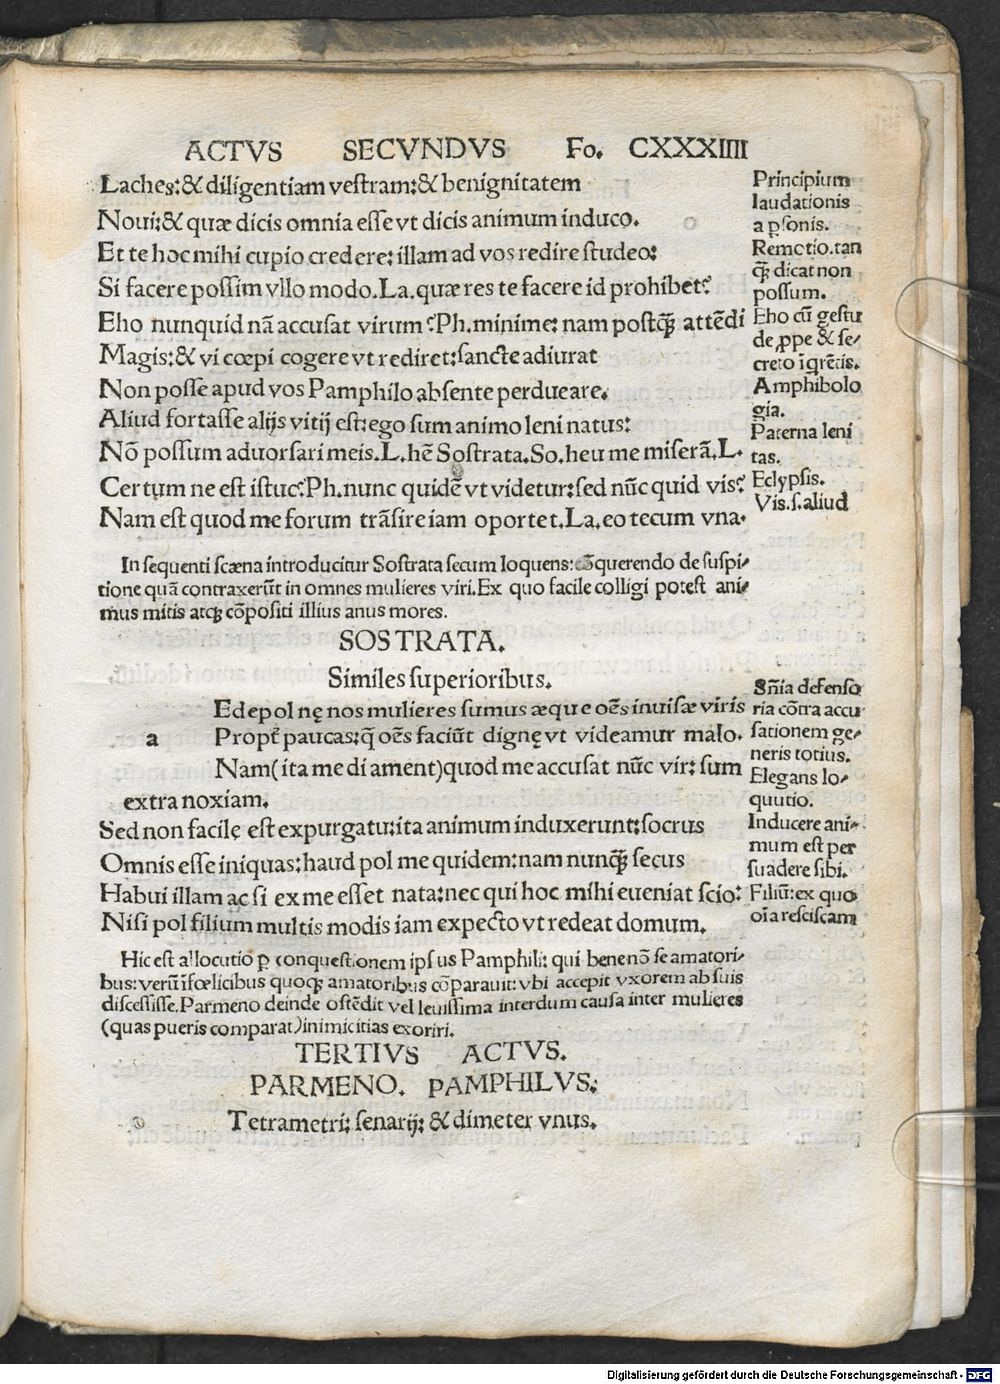 ACTVS SECVNDVS Fo. CXXXIIII
Laches:& diligentiam vestram:& benignitatem
Noui:& quæ dicis omnia esse vt dicis animum induco.
Et te hoc mihi cupio credere: illam ad vos redire studeo:
Si facere possim vllo modo.La.quæ res te facere id prohibet?
Eho nunquid nã accusat virum?Ph.minime: nam postq̃ attẽdi
Magis:& vi cœpi cogere vt rediret:sancte adiurat
Non posse apud vos Pamphilo absente perdueare.
Aliud fortasse alijs vitij est:ego sum animo leni natus:
Nõ possum aduorsari meis.L.hẽ Sostrata.So.heu me miserã.L.
Certum ne est istuc?Ph.nunc quidẽ vt videtur:sed nũc quid vis?
Nam est quod me forum trãsire iam oportet.La.eo tecum vna.
Principium
laudationis
a ꝑsonis.
Remotio.tan
q̃ dicat non
possum.
Eho cũ gestu
de ꝓpe & se-
creto ĩgrẽtis.
Amphibolo
gia.
Paterna leni
tas.
Eclypsis.
Vis.s.aliud
In sequenti scæna introducitur Sostrata secum loquens: cõquerendo de suspi-
tione quã contraxerũt in omnes mulieres viri.Ex quo facile colligi potest ani-
mus mitis atqꝫ cõpositi illius anus mores.
SOSTRATA.
Similes superioribus.
Edepol nę nos mulieres sumus æque oẽs inuisæ viris
a Propt̃ paucas:q̃ oẽs faciũt dignę vt videamur malo.
Nam(ita me di ament)quod me accusat nũc vir: sum
extra noxiam.
Sed non facilę est expurgatu:ita animum induxerunt:socrus
Omnis esse iniquas:haud pol me quidem:nam nunq̃ secus
Habui illam ac si ex me esset nata:nec qui hoc mihi eueniat scio:
Nisi pol filium multis modis iam expecto vt redeat domum.
Sñia defenso
ria cõtra accu
sationem ge-
neris totius.
Elegans lo-
quutio.
Inducere ani-
mum est per
suadere sibi.
Filiũ: ex quo
oĩa resciscam
Hic est allocutio ꝑ conquestionem ipsius Pamphili: qui bene nõ se amatori-
bus:verũ ĩfœlicibus quoqꝫ amatoribus cõparauit: vbi accepit vxorem ab suis
discessisse.Parmeno deinde ostẽdit vel leuissima interdum causa inter mulieres
(quas pueris comparat)inimicitias exoriri.
TERTIVS ACTVS.
PARMENO. PAMPHILVS:
Tetrametri: senarij: & dimeter vnus.
Digitalisierung gefördert durch die Deutsche Forschungsgemeinschaft - DFG